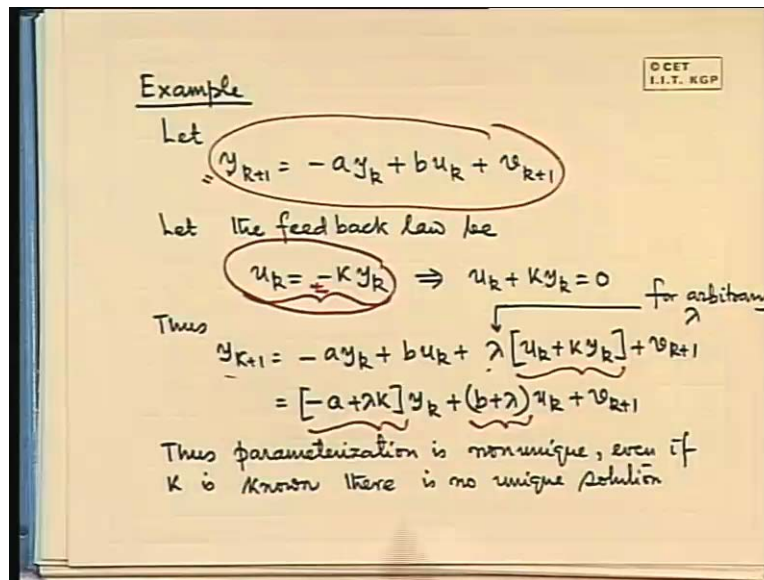 © CET
I.I.T. KGP
Example
Let
y_{k+1} = -a y_k + b u_k + v_{k+1}
Let the feedback law be
u_k = -K y_k ⇒ u_k + K y_k = 0
for arbitrary λ
Thus
y_{K+1} = -a y_k + b u_k + λ [u_k + K y_k] + v_{k+1}
= [-a + λK] y_k + (b + λ) u_k + v_{k+1}
Thus parameterization is nonunique, even if
K is known there is no unique solution